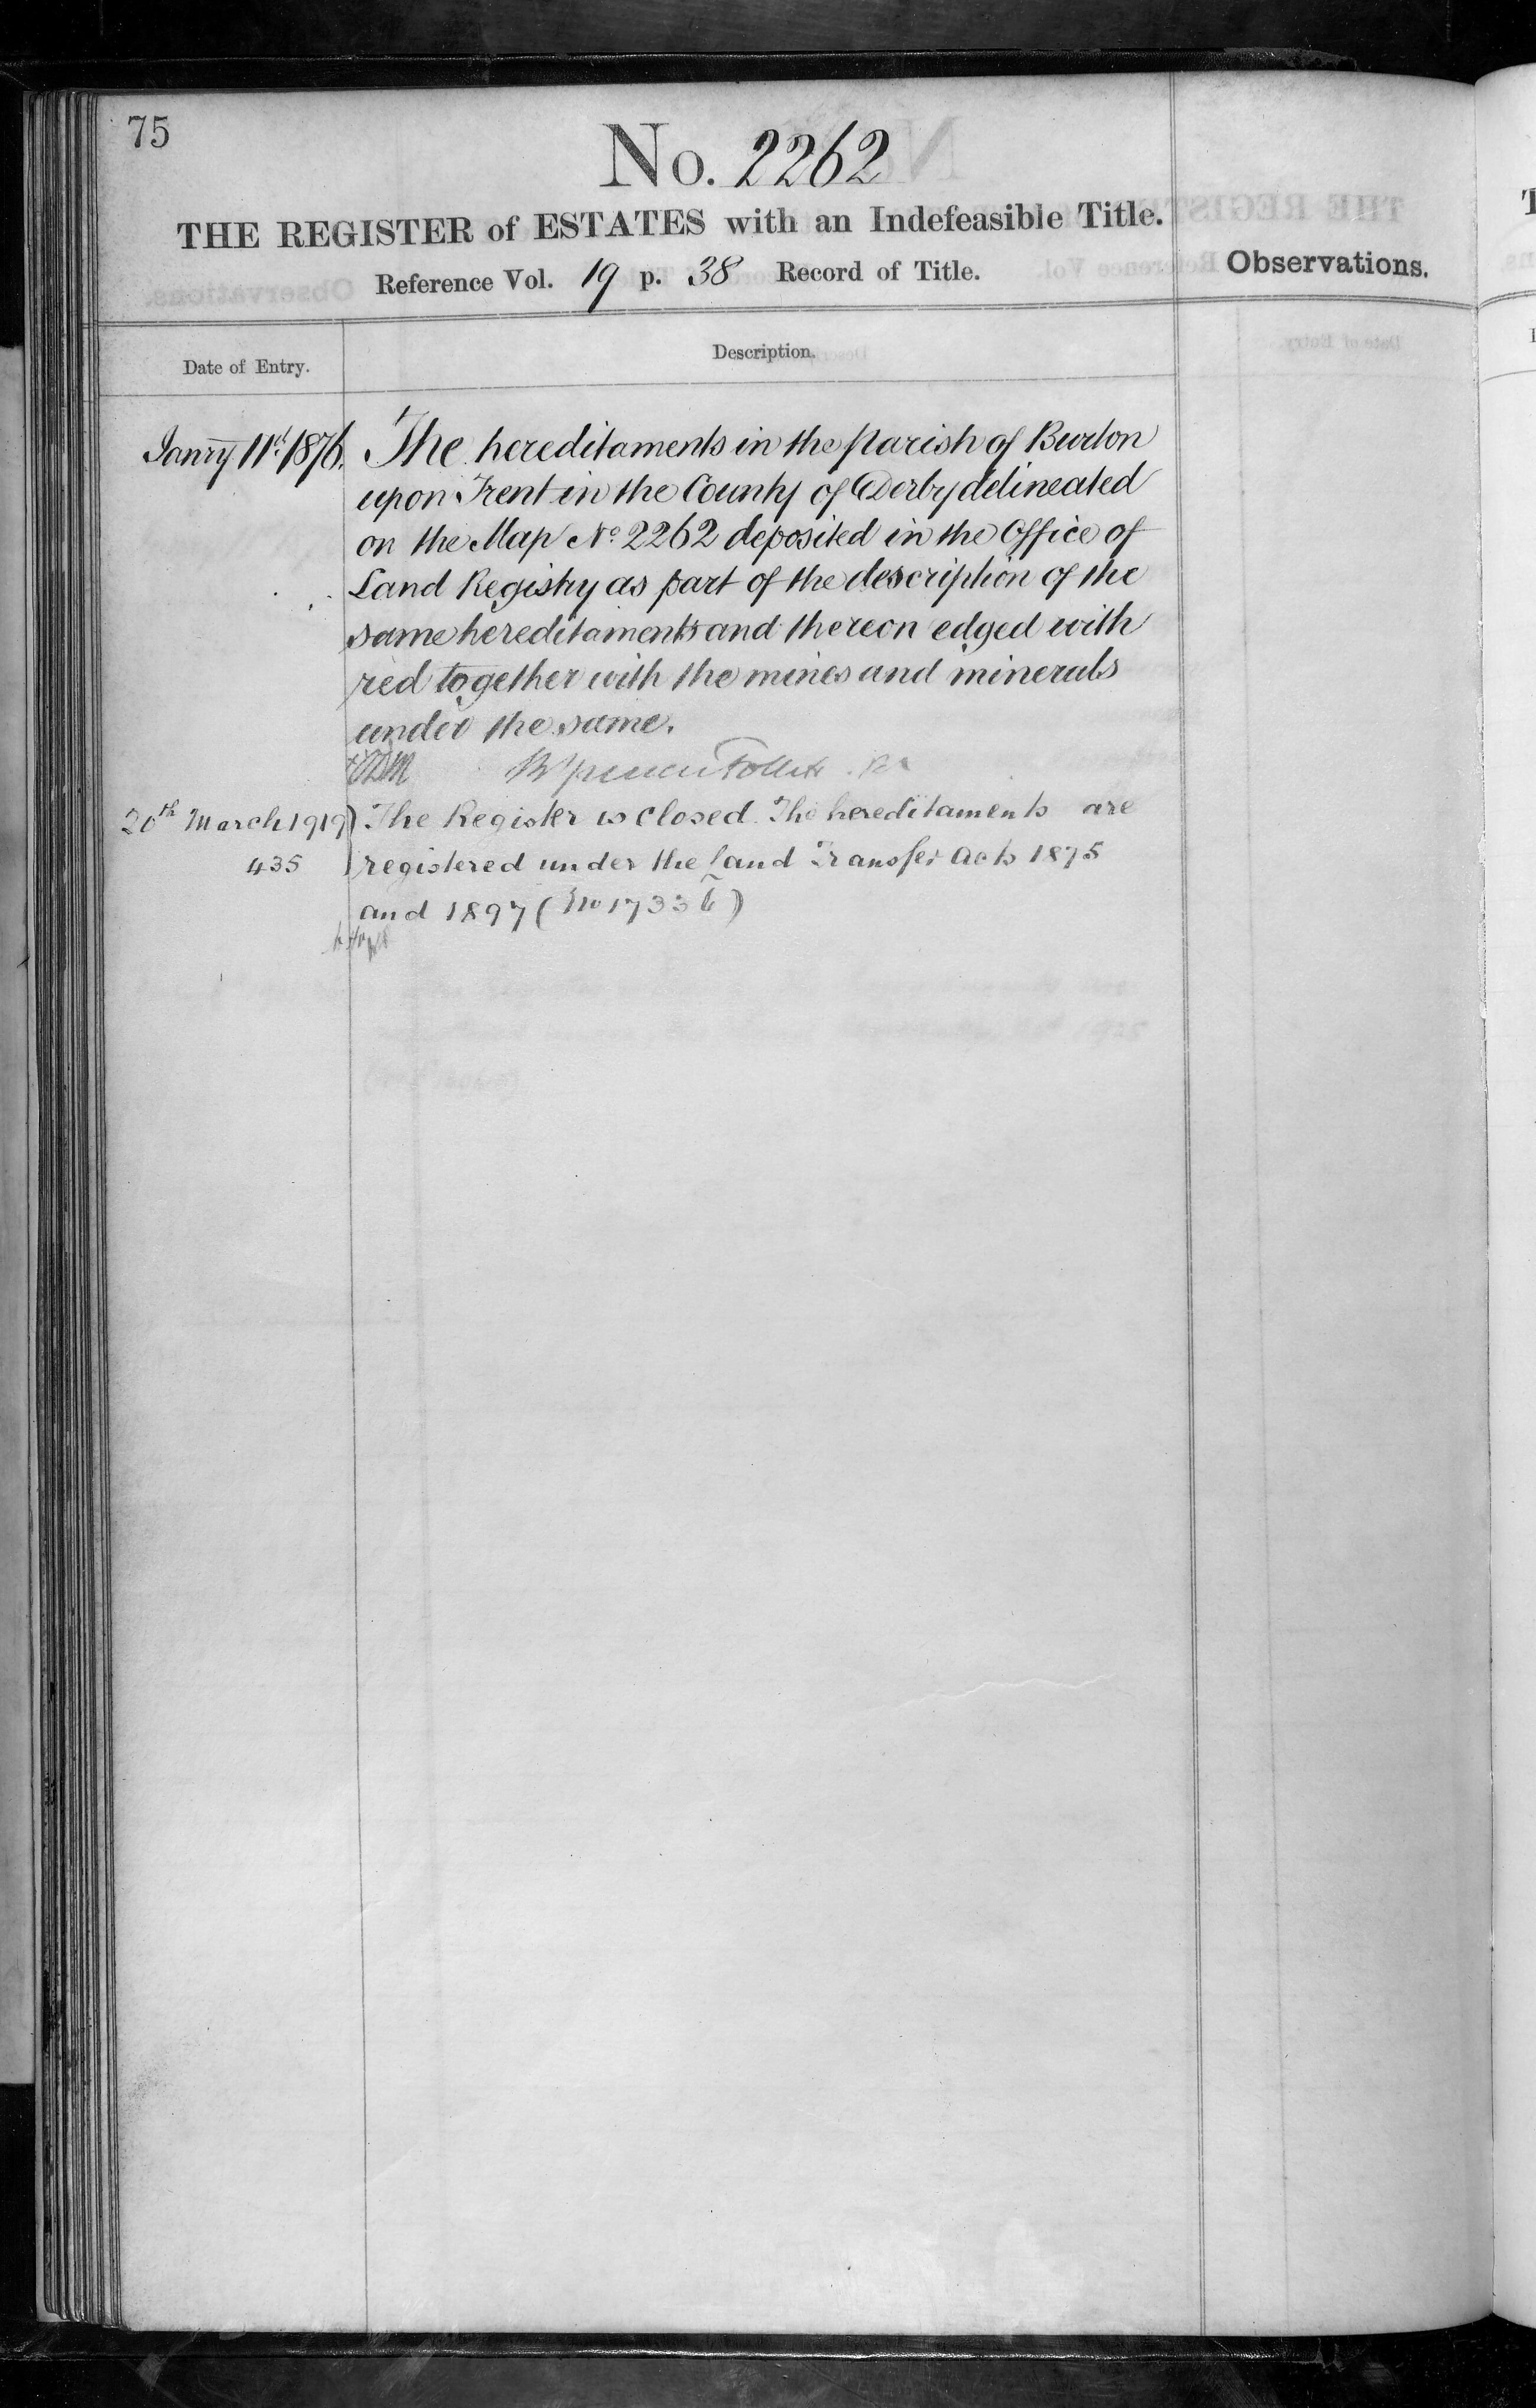 75
No. 2262
THE REGISTER of ESTATES with an Indefeasible Title.
Reference Vol. 19 p. 38 Record of Title.
Observations.
Date of Entry.
Description.
Janry 11th 1876. The hereditaments in the parish of Burton
upon Trent in the County of Derby delineated
on the Map No. 2262 deposited in the Office of
Land Registry as part of the description of the
same hereditaments and thereon edged with
red together with the mines and minerals
under the same.
Follett
20th March 1919) The Register is closed. The hereditaments are
435 registered under the Land Transfer Acts 1875
and 1897 (No 17336)